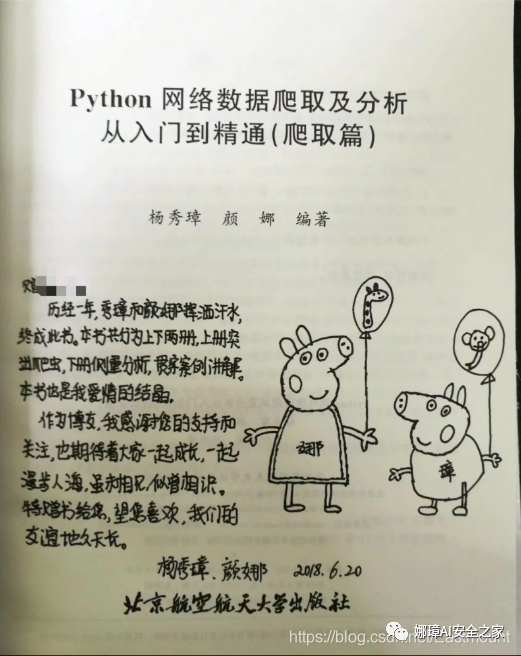 Python 网络数据爬取及分析
从入门到精通(爬取篇)
杨秀璋 颜 娜 编著
历经一年,秀璋和颜娜挥洒汗水,
终成此书。本书共分为上下两册,上册突
出爬虫,下册侧重分析,贯穿案例讲解。
本书也是我爱情的结晶。
作为博友,我感谢您的支持和
关注,也期待着大家一起成长,一起
漫步人海,虽未相见,似曾相识。
特赠书给您,望您喜欢,我们的
友谊地久天长。
娜
璋
杨秀璋、颜娜 2018.6.20
北京航空航天大学出版社
https://blog.csdn.net/Eastmount
娜璋AI安全之家